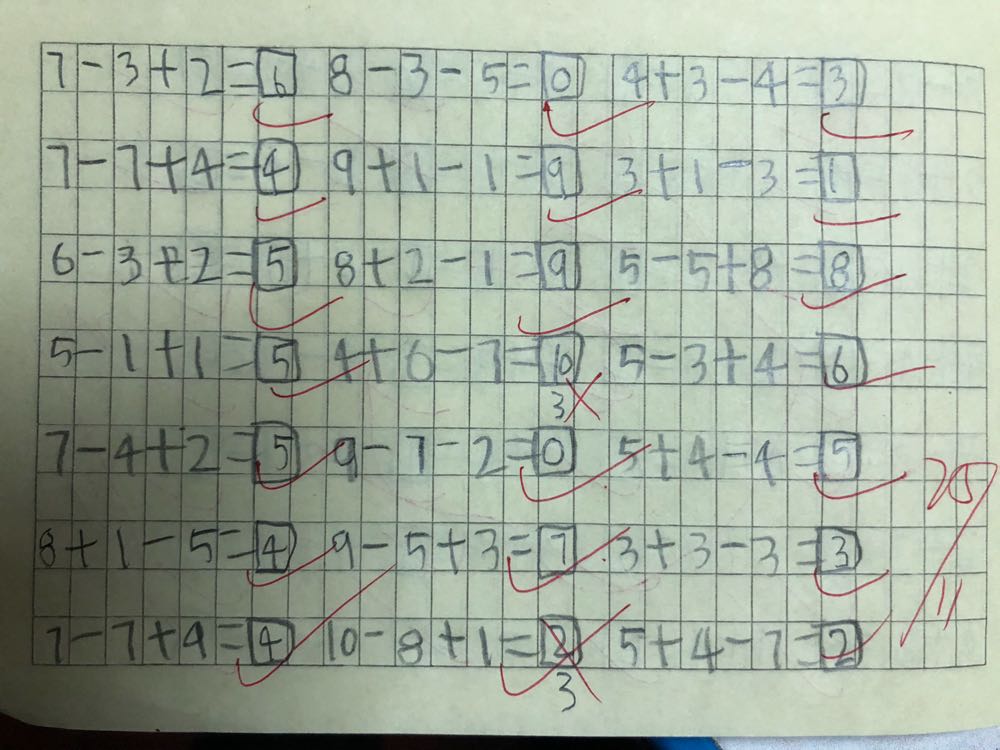 7-3+2=6 8-3-5=0 4+3-4=3
7-7+4=4 9+1-1=9 3+1-3=1
6-3+2=5 8+2-1=9 5-5+8=8
5-1+1=5 4+6-7=10 5-3+4=6
3
7-4+2=5 9-7-2=0 5+4-4=5
8+1-5=4 9-5+3=7 3+3-3=3
7-7+4=4 10-8+1=2 5+4-7=2
3